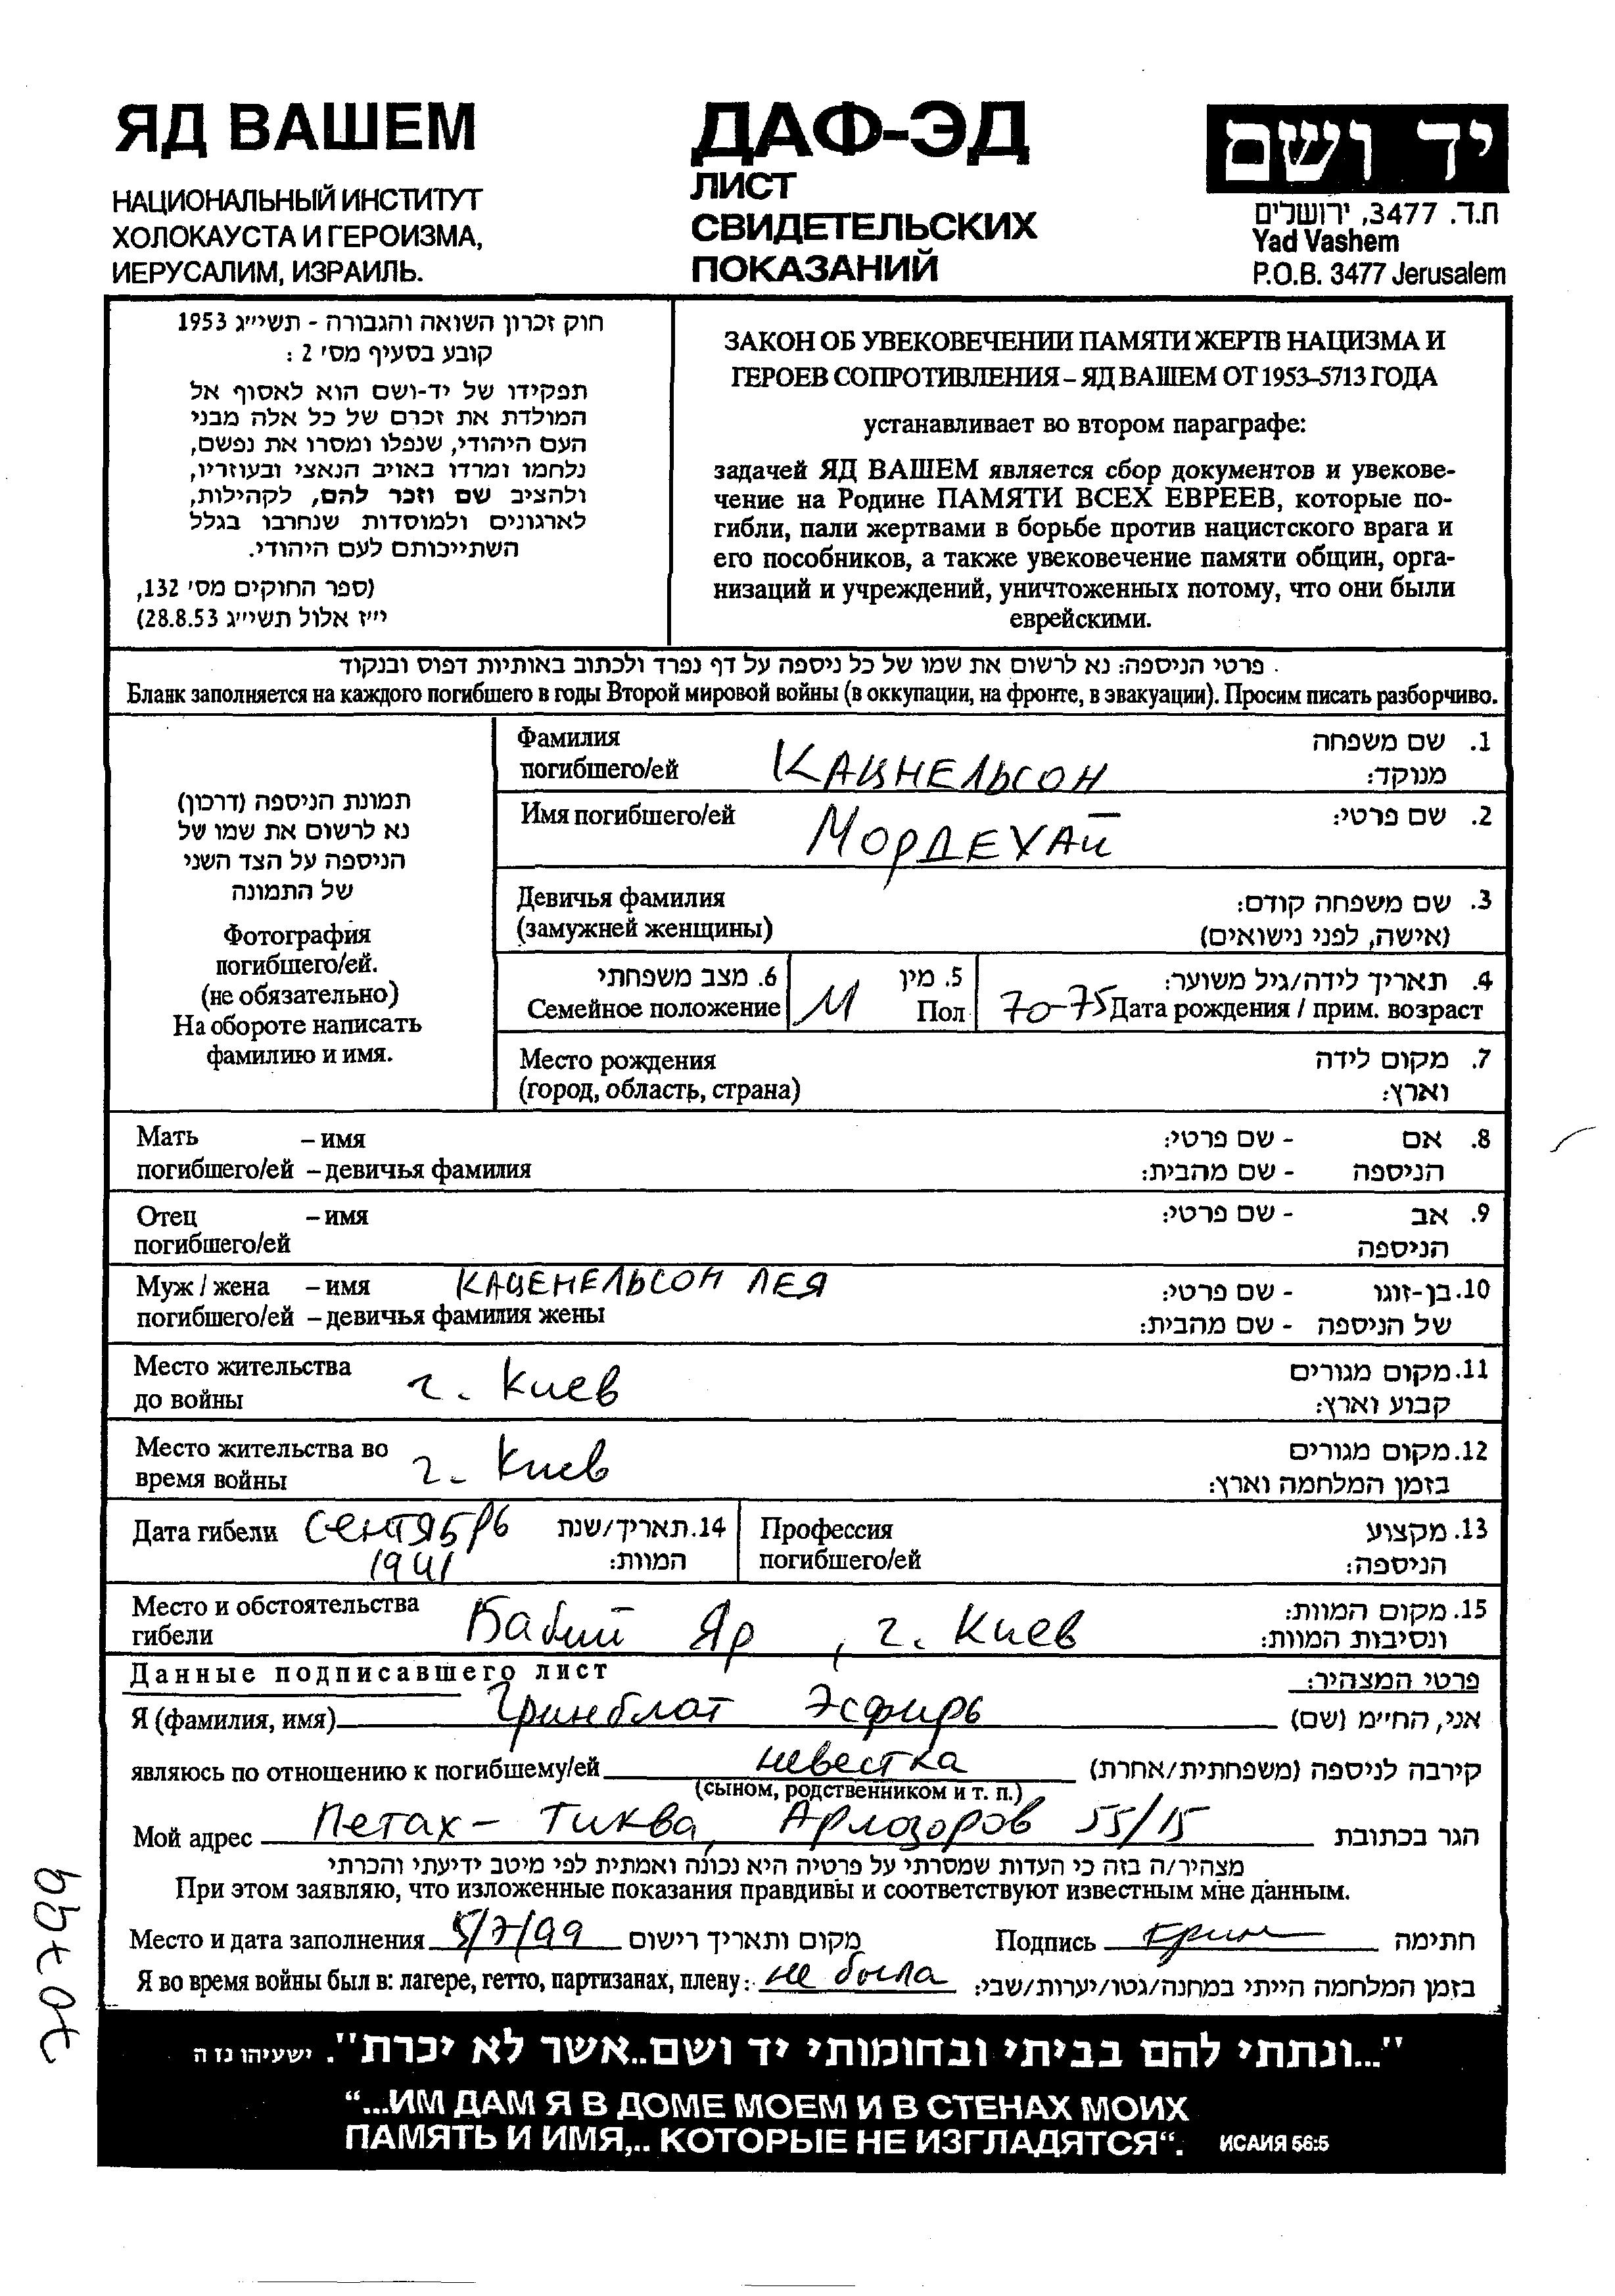 ЯД ВАШЕМ
НАЦИОНАЛЬНЫЙ ИНСТИТУТ
ХОЛОКАУСТА И ГЕРОИЗМА,
ИЕРУСАЛИМ, ИЗРАИЛЬ.
ДАФ-ЭД
ЛИСТ
СВИДЕТЕЛЬСКИХ
ПОКАЗАНИЙ
יד ושם
ת.ד. 3477, ירושלים
Yad Vashem
P.O.B. 3477 Jerusalem
חוק זכרון השואה והגבורה - תשי״ג 1953
קובע בסעיף מס׳ 2 :
תפקידו של יד-ושם הוא לאסוף אל
המולדת את זכרם של כל אלה מבני
העם היהודי, שנפלו ומסרו את נפשם,
נלחמו ומרדו באויב הנאצי ובעוזריו,
ולהציב שם וזכר להם, לקהילות,
לארגונים ולמוסדות שנחרבו בגלל
השתייכותם לעם היהודי.
(ספר החוקים מס׳ 132,
י״ז אלול תשי״ג 28.8.53)
ЗАКОН ОБ УВЕКОВЕЧЕНИИ ПАМЯТИ ЖЕРТВ НАЦИЗМА И
ГЕРОЕВ СОПРОТИВЛЕНИЯ – ЯД ВАШЕМ ОТ 1953–5713 ГОДА
устанавливает во втором параграфе:
задачей ЯД ВАШЕМ является сбор документов и увекове-
чение на Родине ПАМЯТИ ВСЕХ ЕВРЕЕВ, которые по-
гибли, пали жертвами в борьбе против нацистского врага и
его пособников, а также увековечение памяти общин, орга-
низаций и учреждений, уничтоженных потому, что они были
еврейскими.
פרטי הניספה: נא לרשום את שמו של כל ניספה על דף נפרד ולכתוב באותיות דפוס ובנקוד
Бланк заполняется на каждого погибшего в годы Второй мировой войны (в оккупации, на фронте, в эвакуации). Просим писать разборчиво.
תמונת הניספה (דרכון)
נא לרשום את שמו של
הניספה על הצד השני
של התמונה
Фотография
погибшего/ей.
(не обязательно)
На обороте написать
фамилию и имя.
Фамилия КАЦНЕЛЬСОН 1. שם משפחה
погибшего/ей מנוקד:
Имя погибшего/ей МОРДЕХАЙ 2. שם פרטי:
Девичья фамилия 3. שם משפחה קודם:
(замужней женщины) (אישה, לפני נישואים)
6. מצב משפחתי 5. מין 4. תאריך לידה/גיל משוער:
Семейное положение М Пол 70-75 Дата рождения / прим. возраст
Место рождения 7. מקום לידה
(город, область, страна) וארץ:
Мать – имя 8. אם - שם פרטי:
погибшего/ей – девичья фамилия הניספה - שם מהבית:
Отец – имя 9. אב - שם פרטי:
погибшего/ей הניספה
Муж / жена – имя КАЦЕНЕЛЬСОН ЛЕЯ 10. בן-זוגו - שם פרטי:
погибшего/ей – девичья фамилия жены של הניספה - שם מהבית:
Место жительства г. Киев 11. מקום מגורים
до войны קבוע וארץ:
Место жительства во г. Киев 12. מקום מגורים
время войны בזמן המלחמה וארץ:
Дата гибели СЕНТЯБРЬ 14. תאריך/שנת Профессия 13. מקצוע
1941 המוות: погибшего/ей הניספה:
Место и обстоятельства Бабий Яр, г. Киев 15. מקום המוות:
гибели ונסיבות המוות:
Данные подписавшего лист פרטי המצהיר:
Я (фамилия, имя) Гринблат Эсфирь אני, החי״מ (שם)
являюсь по отношению к погибшему/ей невестка קירבה לניספה (משפחתית/אחרת)
(сыном, родственником и т. п.)
Мой адрес Петах-Тиква, Арлозоров 55/15 הגר בכתובת
מצהיר/ה בזה כי העדות שמסרתי על פרטיה היא נכונה ואמתית לפי מיטב ידיעתי והכרתי
При этом заявляю, что изложенные показания правдивы и соответствуют известным мне данным.
Место и дата заполнения 5/7/99 מקום ותאריך רישום Подпись Грин חתימה
Я во время войны был в: лагере, гетто, партизанах, плену: не была בזמן המלחמה הייתי במחנה/גטו/יערות/שבי:
"...ונתתי להם בביתי ובחומותי יד ושם..אשר לא יכרת". ישעיהו נז ה
“...ИМ ДАМ Я В ДОМЕ МОЕМ И В СТЕНАХ МОИХ
ПАМЯТЬ И ИМЯ,.. КОТОРЫЕ НЕ ИЗГЛАДЯТСЯ“. ИСАИЯ 56:5